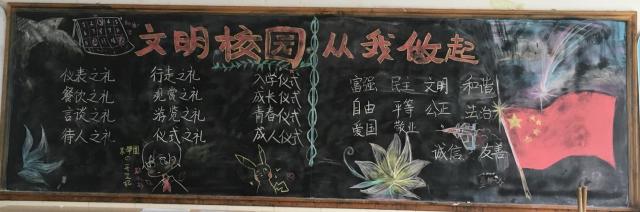 文明校园 从我做起
仪表之礼 行走之礼 入学仪式
餐饮之礼 观赏之礼 成长仪式
言谈之礼 游览之礼 青春仪式
待人之礼 仪式之礼 成人仪式
富强 民主 文明 和谐
自由 平等 公正 法治
爱国 敬业
诚信 友善